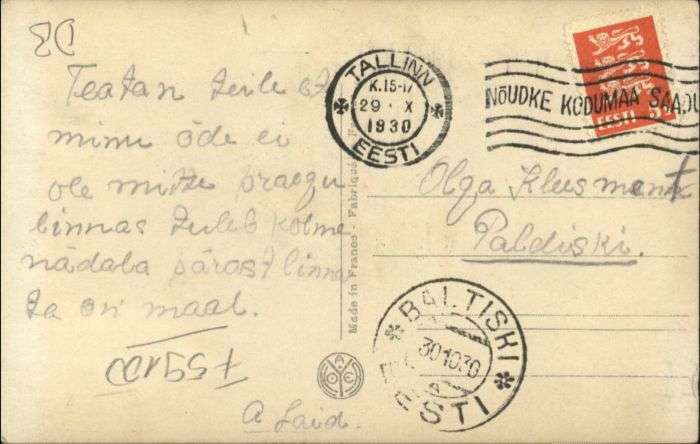 DB
Teatan teile et
minu õde ei
ole mitte praegu
linnas tuleb kolme
nädala pärast linna
ta on maal.
A Laid.
Made in France - Fabriqué
TALLINN
K.15-17
29 · X
1930
EESTI
NÕUDKE KODUMAA SAADU
EESTI
Olga Kleesment
Paldiski.
BALTISKI
30 10 30
EESTI